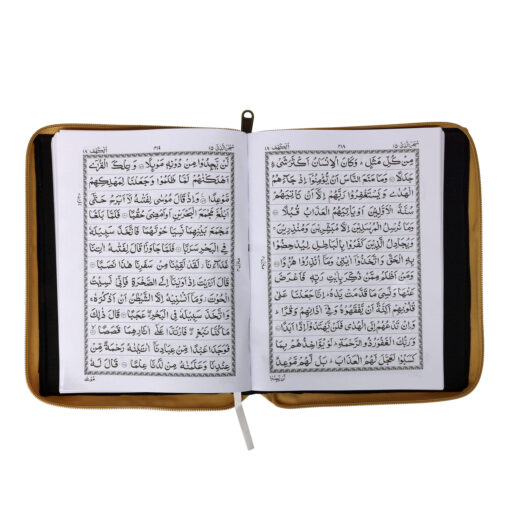 سبحن الذی ١٥
٣١٨
الكهف ١٨
مِنْ كُلِّ مَثَلٍ ؕ وَكَانَ الْاِنْسَانُ اَكْثَرَ شَىْءٍ
جَدَلًا ۝ وَمَا مَنَعَ النَّاسَ اَنْ يُّؤْمِنُوْۤا اِذْ جَآءَهُمُ
الْهُدٰى وَيَسْتَغْفِرُوْا رَبَّهُمْ اِلَّاۤ اَنْ تَاْتِيَهُمْ
سُنَّةُ الْاَوَّلِيْنَ اَوْ يَاْتِيَهُمُ الْعَذَابُ قُبُلًا ۝
وَمَا نُرْسِلُ الْمُرْسَلِيْنَ اِلَّا مُبَشِّرِيْنَ وَمُنْذِرِيْنَ ۚ
وَيُجَادِلُ الَّذِيْنَ كَفَرُوْا بِالْبَاطِلِ لِيُدْحِضُوْا
بِهِ الْحَقَّ وَاتَّخَذُوْۤا اٰيٰتِىْ وَمَاۤ اُنْذِرُوْا هُزُوًا ۝
وَمَنْ اَظْلَمُ مِمَّنْ ذُكِّرَ بِاٰيٰتِ رَبِّهٖ فَاَعْرَضَ
عَنْهَا وَنَسِىَ مَا قَدَّمَتْ يَدٰهُ ؕ اِنَّا جَعَلْنَا عَلٰى
قُلُوْبِهِمْ اَكِنَّةً اَنْ يَّفْقَهُوْهُ وَفِىْۤ اٰذَانِهِمْ وَقْرًا ؕ
وَاِنْ تَدْعُهُمْ اِلَى الْهُدٰى فَلَنْ يَّهْتَدُوْۤا اِذًا اَبَدًا ۝
وَرَبُّكَ الْغَفُوْرُ ذُو الرَّحْمَةِ ؕ لَوْ يُؤَاخِذُهُمْ بِمَا
كَسَبُوْا لَعَجَّلَ لَهُمُ الْعَذَابَ ؕ بَلْ لَّهُمْ مَّوْعِدٌ
سبحن الذی ١٥
٣١٩
الكهف ١٨
لَّنْ يَّجِدُوْا مِنْ دُوْنِهٖ مَوْئِلًا ۝ وَتِلْكَ الْقُرٰۤى
اَهْلَكْنٰهُمْ لَمَّا ظَلَمُوْا وَجَعَلْنَا لِمَهْلِكِهِمْ
مَّوْعِدًا ۝ وَاِذْ قَالَ مُوْسٰى لِفَتٰىهُ لَاۤ اَبْرَحُ حَتّٰۤى
اَبْلُغَ مَجْمَعَ الْبَحْرَيْنِ اَوْ اَمْضِىَ حُقُبًا ۝ فَلَمَّا بَلَغَا
مَجْمَعَ بَيْنِهِمَا نَسِيَا حُوْتَهُمَا فَاتَّخَذَ سَبِيْلَهٗ
فِى الْبَحْرِ سَرَبًا ۝ فَلَمَّا جَاوَزَا قَالَ لِفَتٰىهُ اٰتِنَا
غَدَآءَنَا ؗ لَقَدْ لَقِيْنَا مِنْ سَفَرِنَا هٰذَا نَصَبًا ۝
قَالَ اَرَءَيْتَ اِذْ اَوَيْنَاۤ اِلَى الصَّخْرَةِ فَاِنِّىْ نَسِيْتُ
الْحُوْتَ ؗ وَمَاۤ اَنْسٰىنِيْهُ اِلَّا الشَّيْطٰنُ اَنْ اَذْكُرَهٗ ۚ
وَاتَّخَذَ سَبِيْلَهٗ فِى الْبَحْرِ ۖ عَجَبًا ۝ قَالَ ذٰلِكَ
مَا كُنَّا نَبْغِ ۖ فَارْتَدَّا عَلٰۤى اٰثَارِهِمَا قَصَصًا ۝
فَوَجَدَا عَبْدًا مِّنْ عِبَادِنَاۤ اٰتَيْنٰهُ رَحْمَةً مِّنْ
عِنْدِنَا وَعَلَّمْنٰهُ مِنْ لَّدُنَّا عِلْمًا ۝ قَالَ لَهٗ